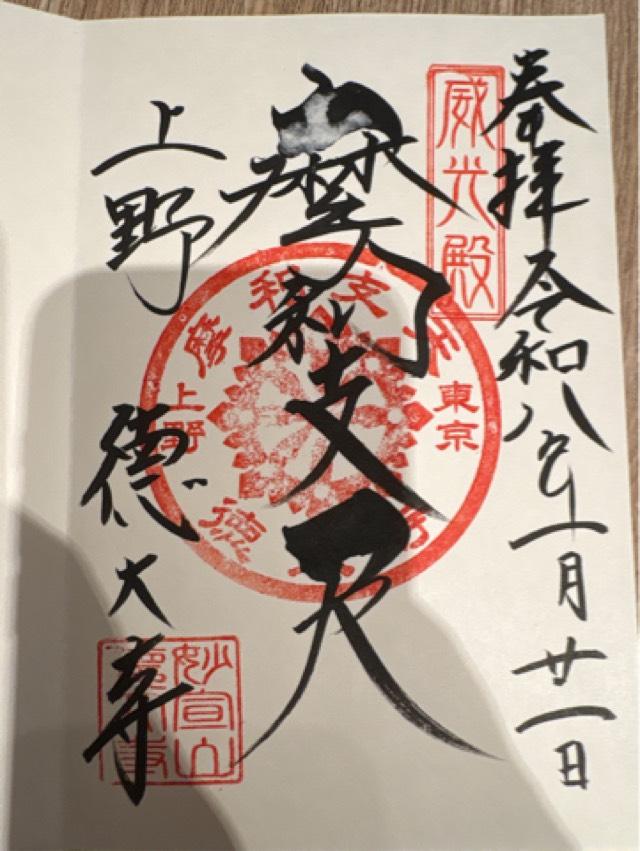 奉拝 令和八年一月廿一日
威光殿
摩利支天
摩利支天
東京
上野
徳大寺
上野 徳大寺
妙宣山
徳大寺